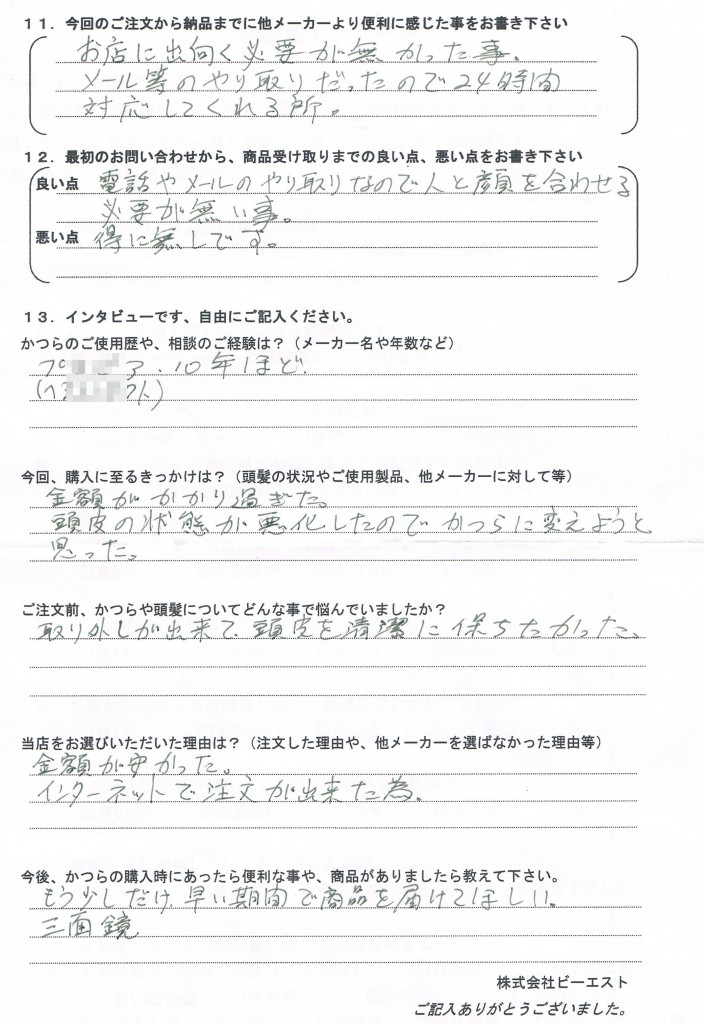 11. 今回のご注文から納品までに他メーカーより便利に感じた事をお書き下さい
お店に出向く必要が無かった事。
メール等のやり取りだったので24時間
対応してくれる所。
12. 最初のお問い合わせから、商品受け取りまでの良い点、悪い点をお書き下さい
良い点 電話やメールのやり取りなので人と顔を合わせる
必要が無い事。
悪い点 得に無しです。
13. インタビューです、自由にご記入ください。
かつらのご使用歴や、相談のご経験は？（メーカー名や年数など）
プ ア．10年ほど．
(ヘ ト)
今回、購入に至るきっかけは？（頭髪の状況やご使用製品、他メーカーに対して等）
金額がかかり過ぎた。
頭皮の状態が悪化したのでかつらに変えようと
思った。
ご注文前、かつらや頭髪についてどんな事で悩んでいましたか？
取り外しが出来て、頭皮を清潔に保ちたかった。
当店をお選びいただいた理由は？（注文した理由や、他メーカーを選ばなかった理由等）
金額が安かった。
インターネットで注文が出来た為。
今後、かつらの購入時にあったら便利な事や、商品がありましたら教えて下さい。
もう少しだけ、早い期間で商品を届けてほしい。
三面鏡
株式会社ビーエスト
ご記入ありがとうございました。